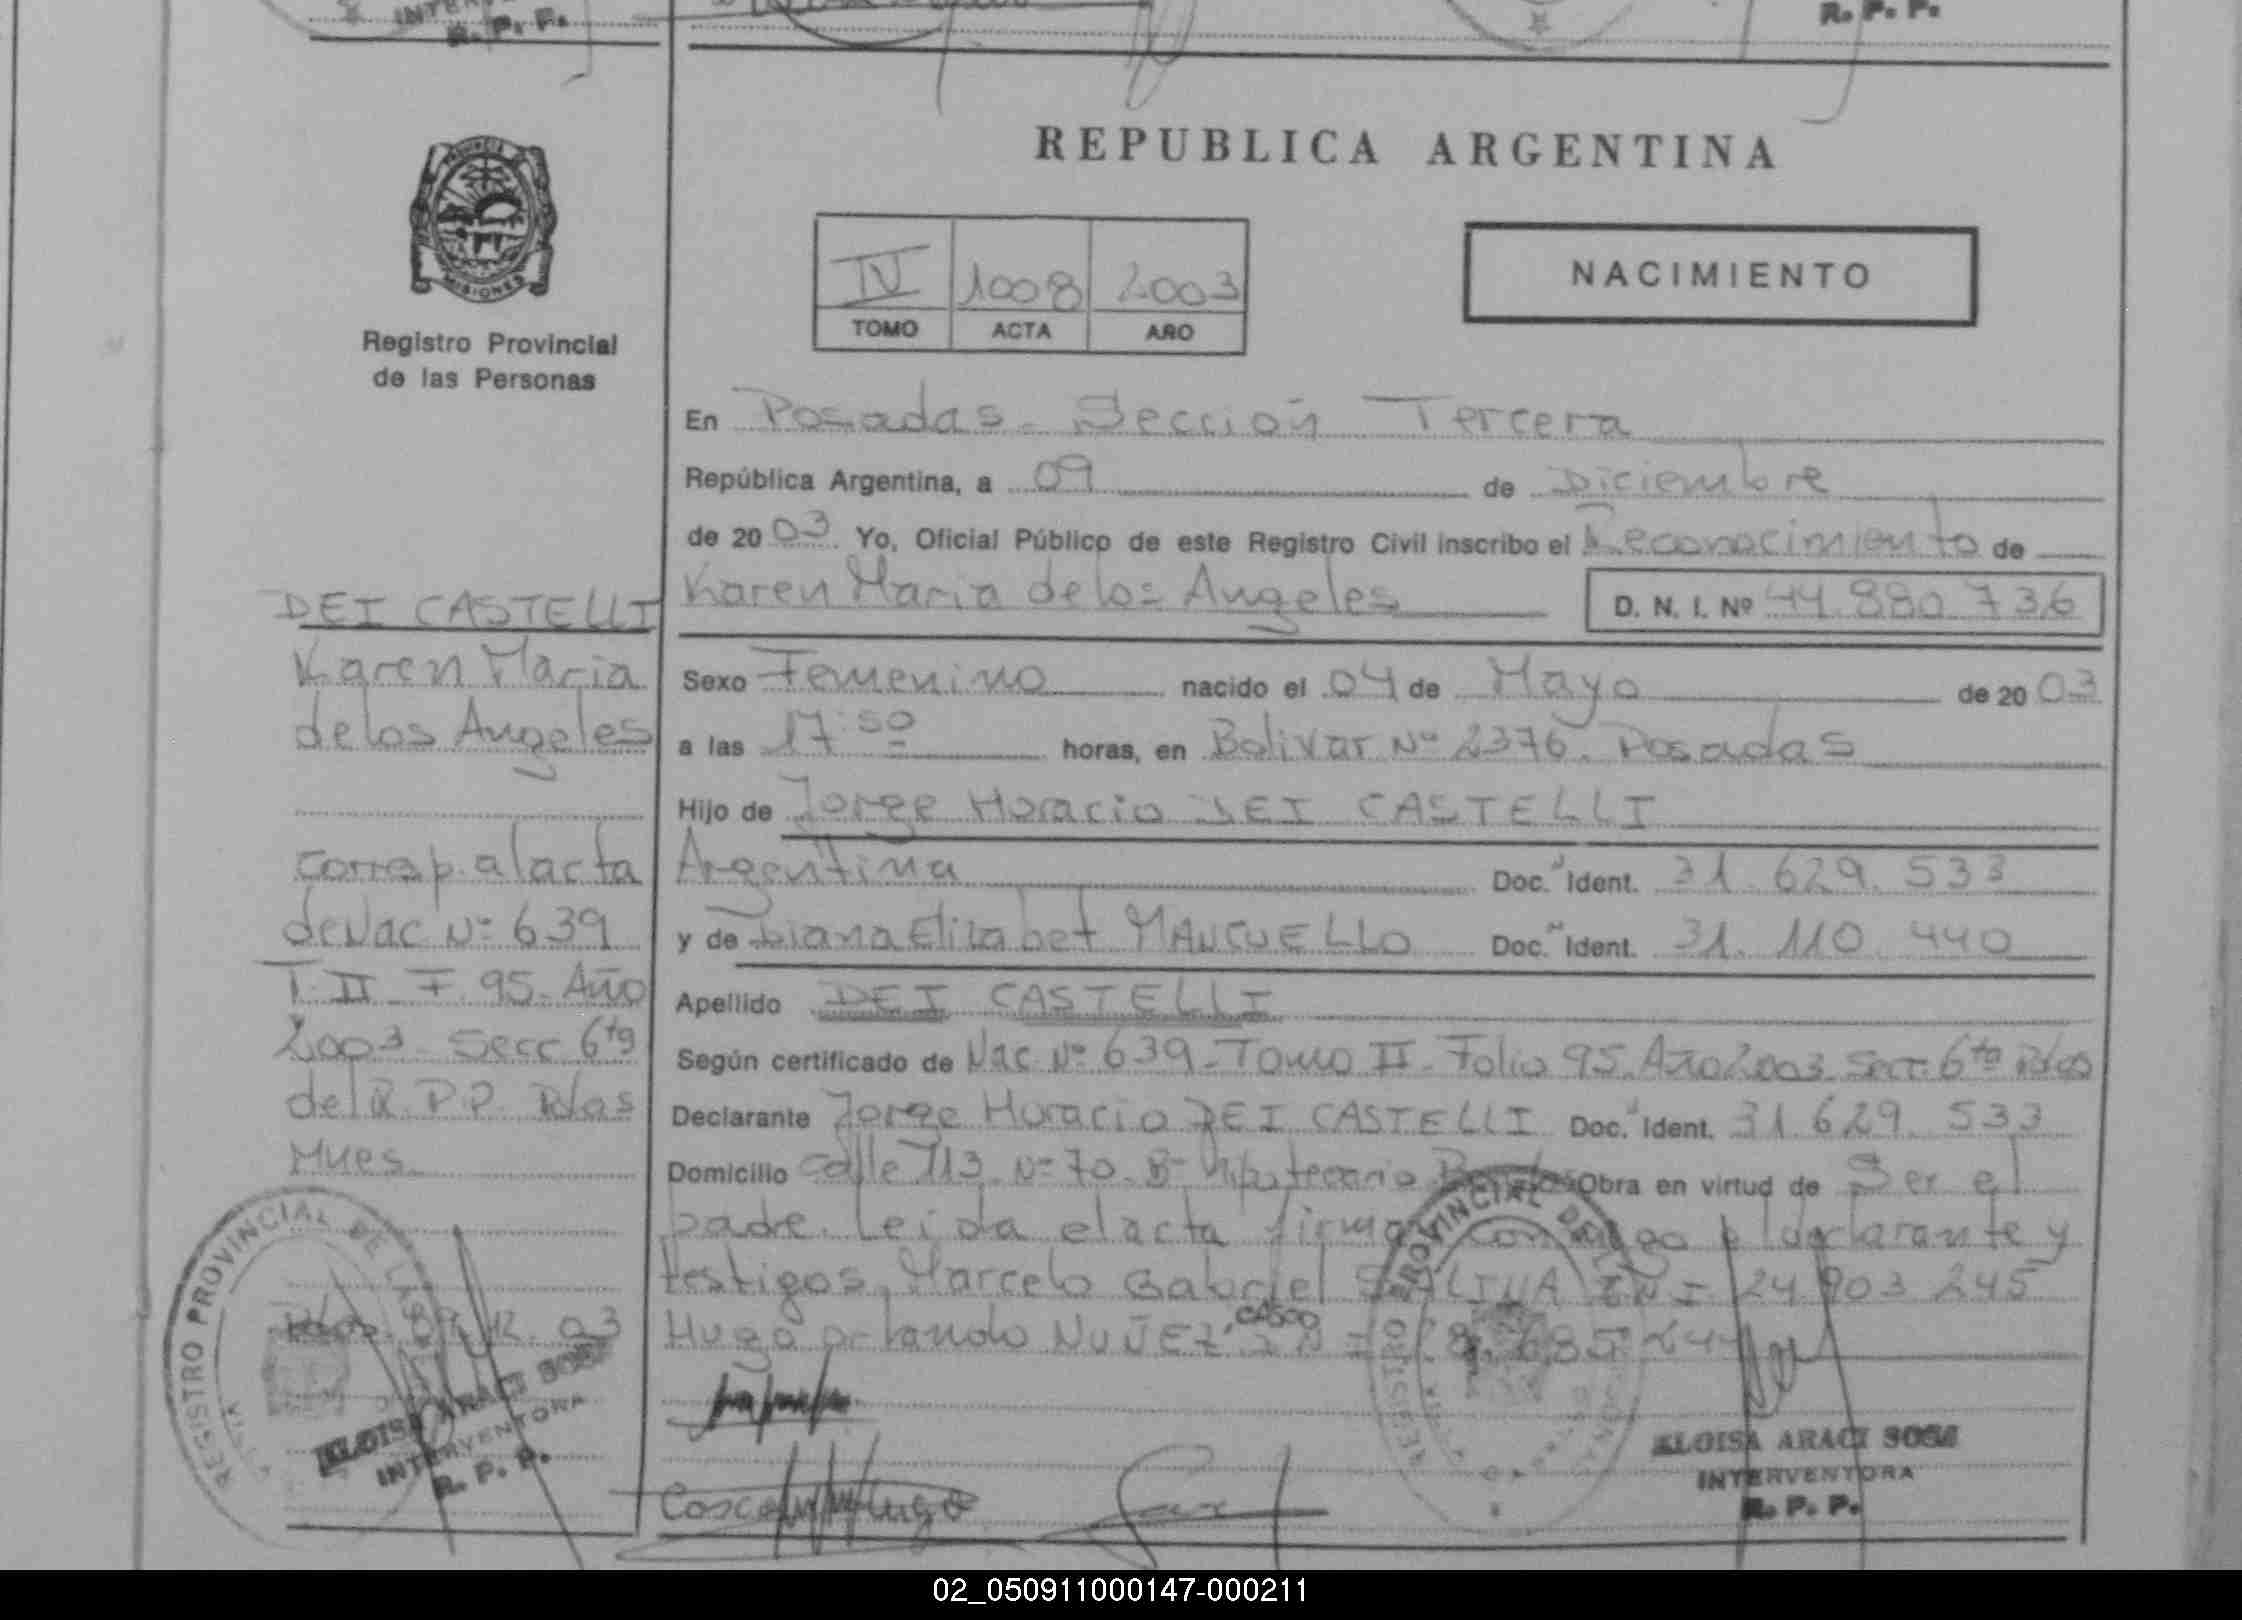 R. P. P.
R. P. P.
PROVINCIA DE
MISIONES
Registro Provincial
de las Personas
REPUBLICA ARGENTINA
IV 1008 2003
TOMO ACTA AÑO
NACIMIENTO
En Posadas - Sección Tercera
República Argentina, a 09 de Diciembre
de 2003. Yo, Oficial Público de este Registro Civil inscribo el Reconocimiento de
Karen Maria de los Angeles D. N. I. Nº 44.880.736
Sexo Femenino nacido el 04 de Mayo de 2003
a las 17:50 horas, en Bolivar Nº 2376. Posadas
Hijo de Jorge Horacio DEI CASTELLI
Argentina Doc. Ident. 31.629.533
y de Diana Elizabet MANCUELLO Doc. Ident. 31.110.440
Apellido DEI CASTELLI
Según certificado de Nac Nº 639 - Tomo II - Folio 95. Año 2003. Secc. 6ta Pdas
Declarante Jorge Horacio DEI CASTELLI Doc. Ident. 31.629.533
Domicilio Calle 113. Nº 70. Bº Hipotecario Obra en virtud de Ser el
padre. Leida el acta firma conmigo el declarante y
testigos. Marcelo Gabriel SALINA DNI 24 903 245
Hugo Orlando NUÑEZ, CASCO DNI
ELOISA ARACI SOSA
INTERVENTORA
R. P. P.
DEI CASTELLI
Karen Maria
de los Angeles
corresp. al acta
de Nac Nº 639
T. II F. 95. Año
2003 - Secc 6ta
del R.P.P. Pdas
Mnes.
Pdas. 09.12.03
REGISTRO PROVINCIAL DE LAS
ELOISA ARACI SOSA
INTERVENTORA
R. P. P.
02_050911000147-000211